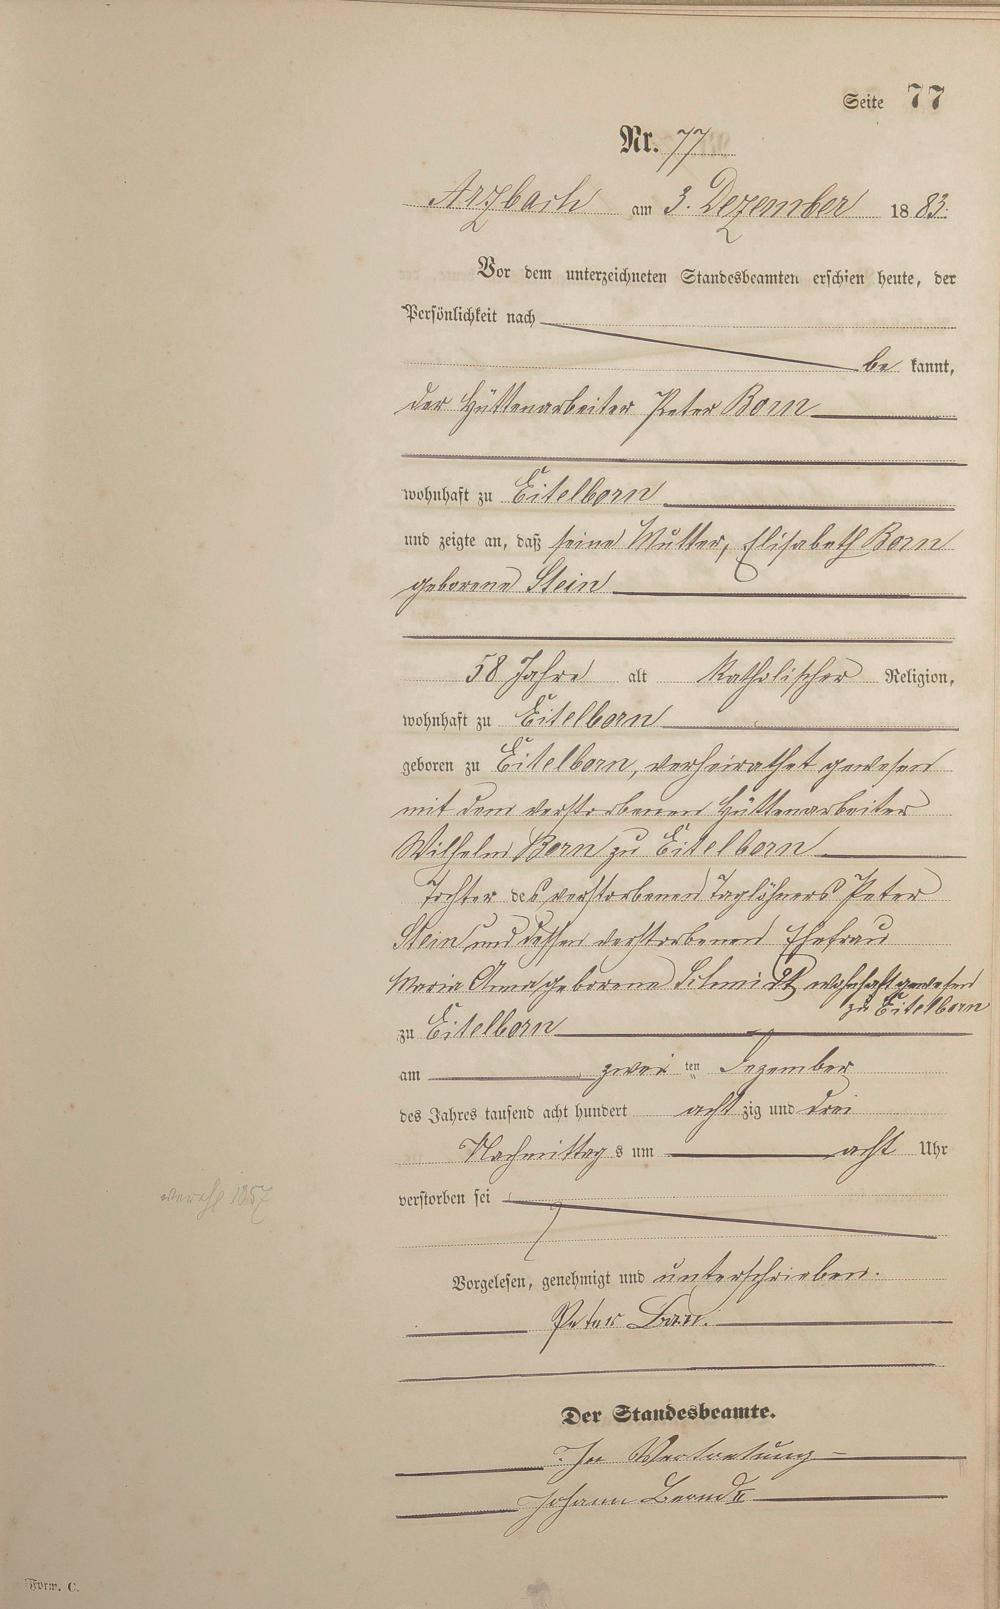 Seite 77
Nr. 77
Arzbach am 3. Dezember 1883.
Vor dem unterzeichneten Standesbeamten erschien heute, der
Persönlichkeit nach
be kannt,
der Hüttenarbeiter Peter Born
wohnhaft zu Eitelborn
und zeigte an, daß seine Mutter, Elisabeth Born
geborene Stein
58 Jahre alt katholischer Religion,
wohnhaft zu Eitelborn
geboren zu Eitelborn, verheirathet gewesen
mit dem verstorbenen Hüttenarbeiter
Wilhelm Born zu Eitelborn
Tochter des verstorbenen Taglöhners Peter
Stein und dessen verstorbenen Ehefrau
Maria Anna geborene Schmidt wohnhaft gewesen
zu Eitelborn
zu Eitelborn
am zwei ten Dezember
des Jahres tausend acht hundert acht zig und drei
Nachmittag s um acht Uhr
verstorben sei
1857
Vorgelesen, genehmigt und unterschrieben.
Peter Born.
Der Standesbeamte.
In Vertretung
Johann Bernd II
Form. C.